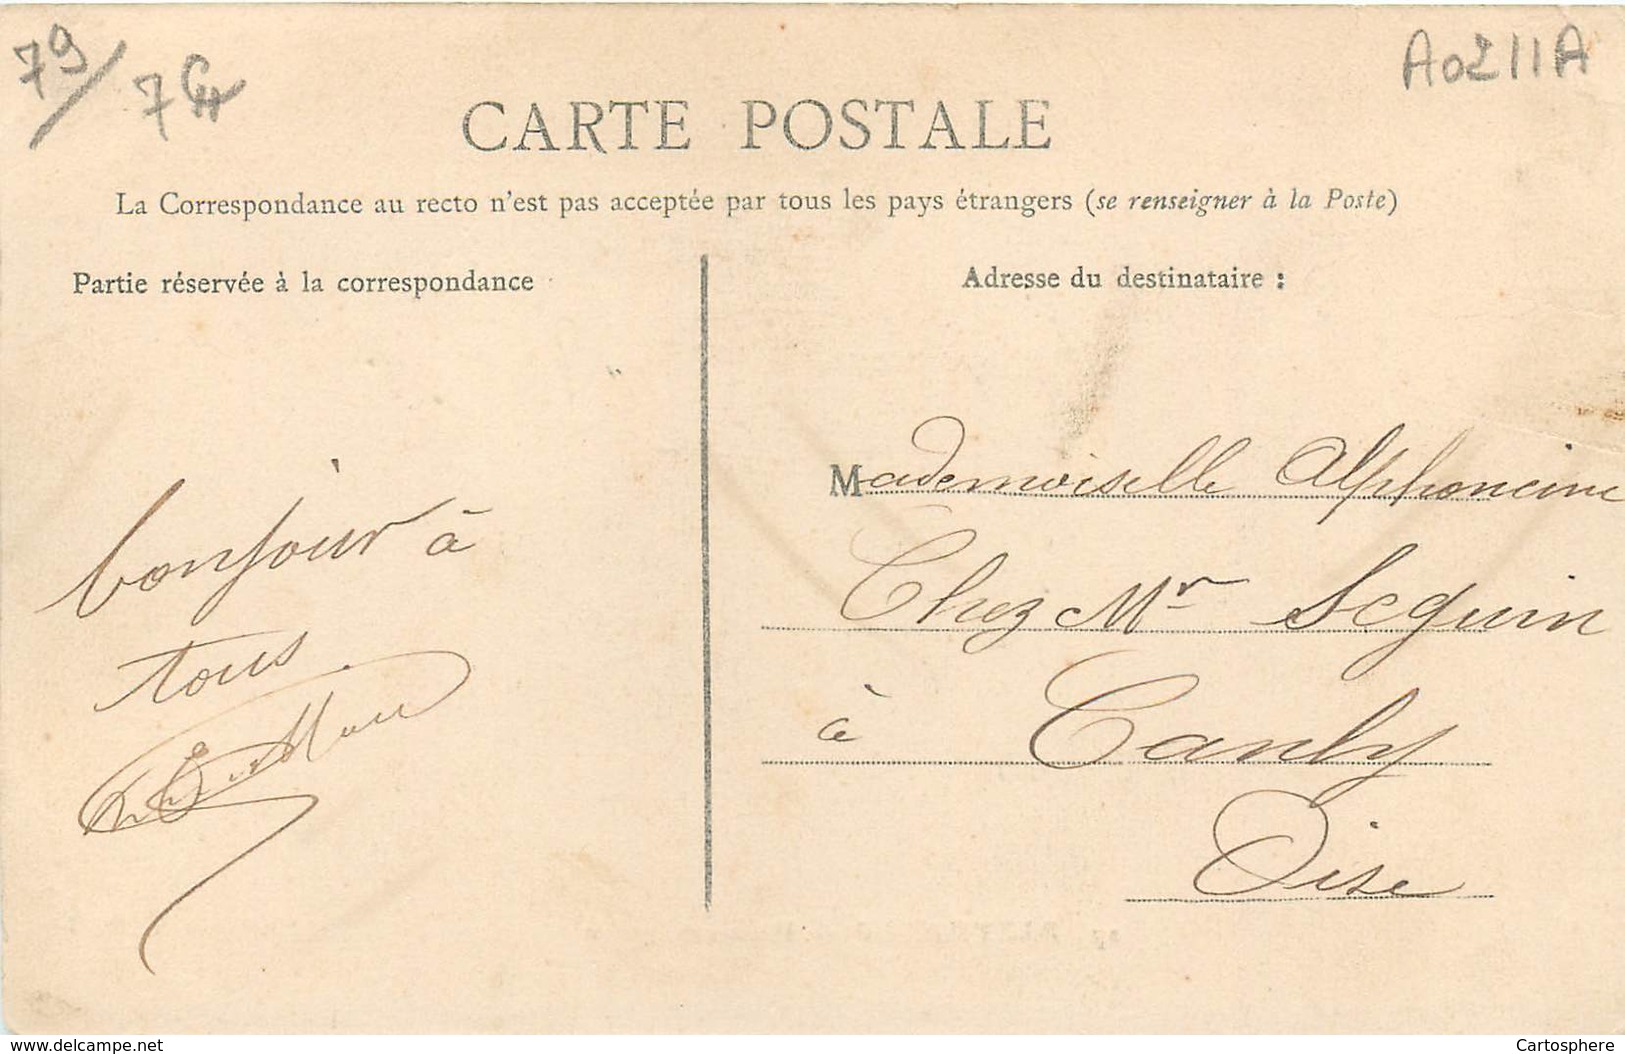 79/
7
A0211A
CARTE POSTALE
La Correspondance au recto n'est pas acceptée par tous les pays étrangers (se renseigner à la Poste)
Partie réservée à la correspondance
bonjour à
tous
Adresse du destinataire :
Mademoiselle Alphoncine
Chez Mr Seguin
à Canly
Oise
www.delcampe.net
Cartosphere